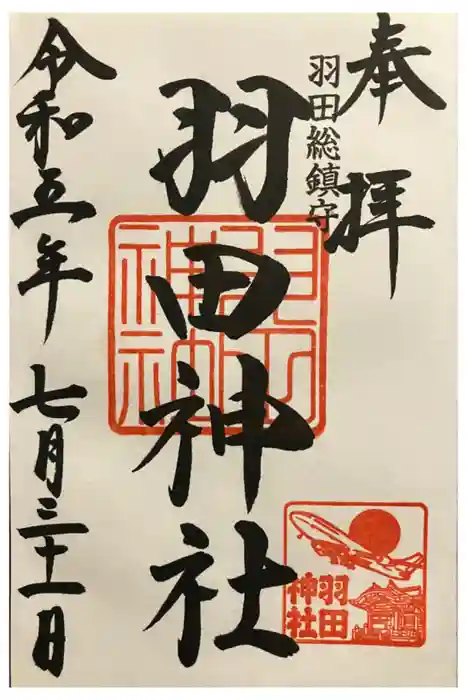 奉拝
羽田総鎮守
羽田神社
令和五年 七月三十一日
羽田
神社